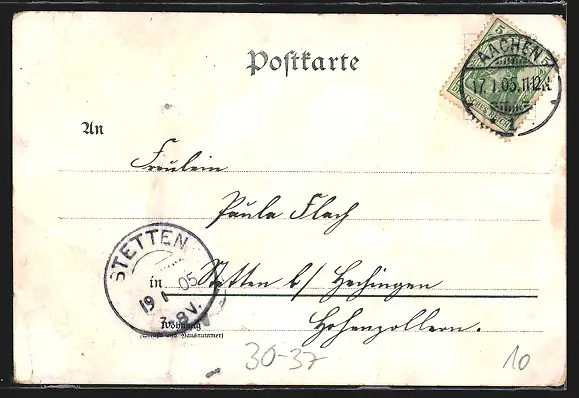 Postkarte
5 5
AACHEN
17.1.05.11-12V.
DEUTSCHES REICH
1
An
Fräulein
Paula Flach
STETTEN
19 1 05
7-8V.
in Stetten b/ Hechingen
Hohenzollern.
Wohnung
(Straße und Hausnummer)
30-37
10